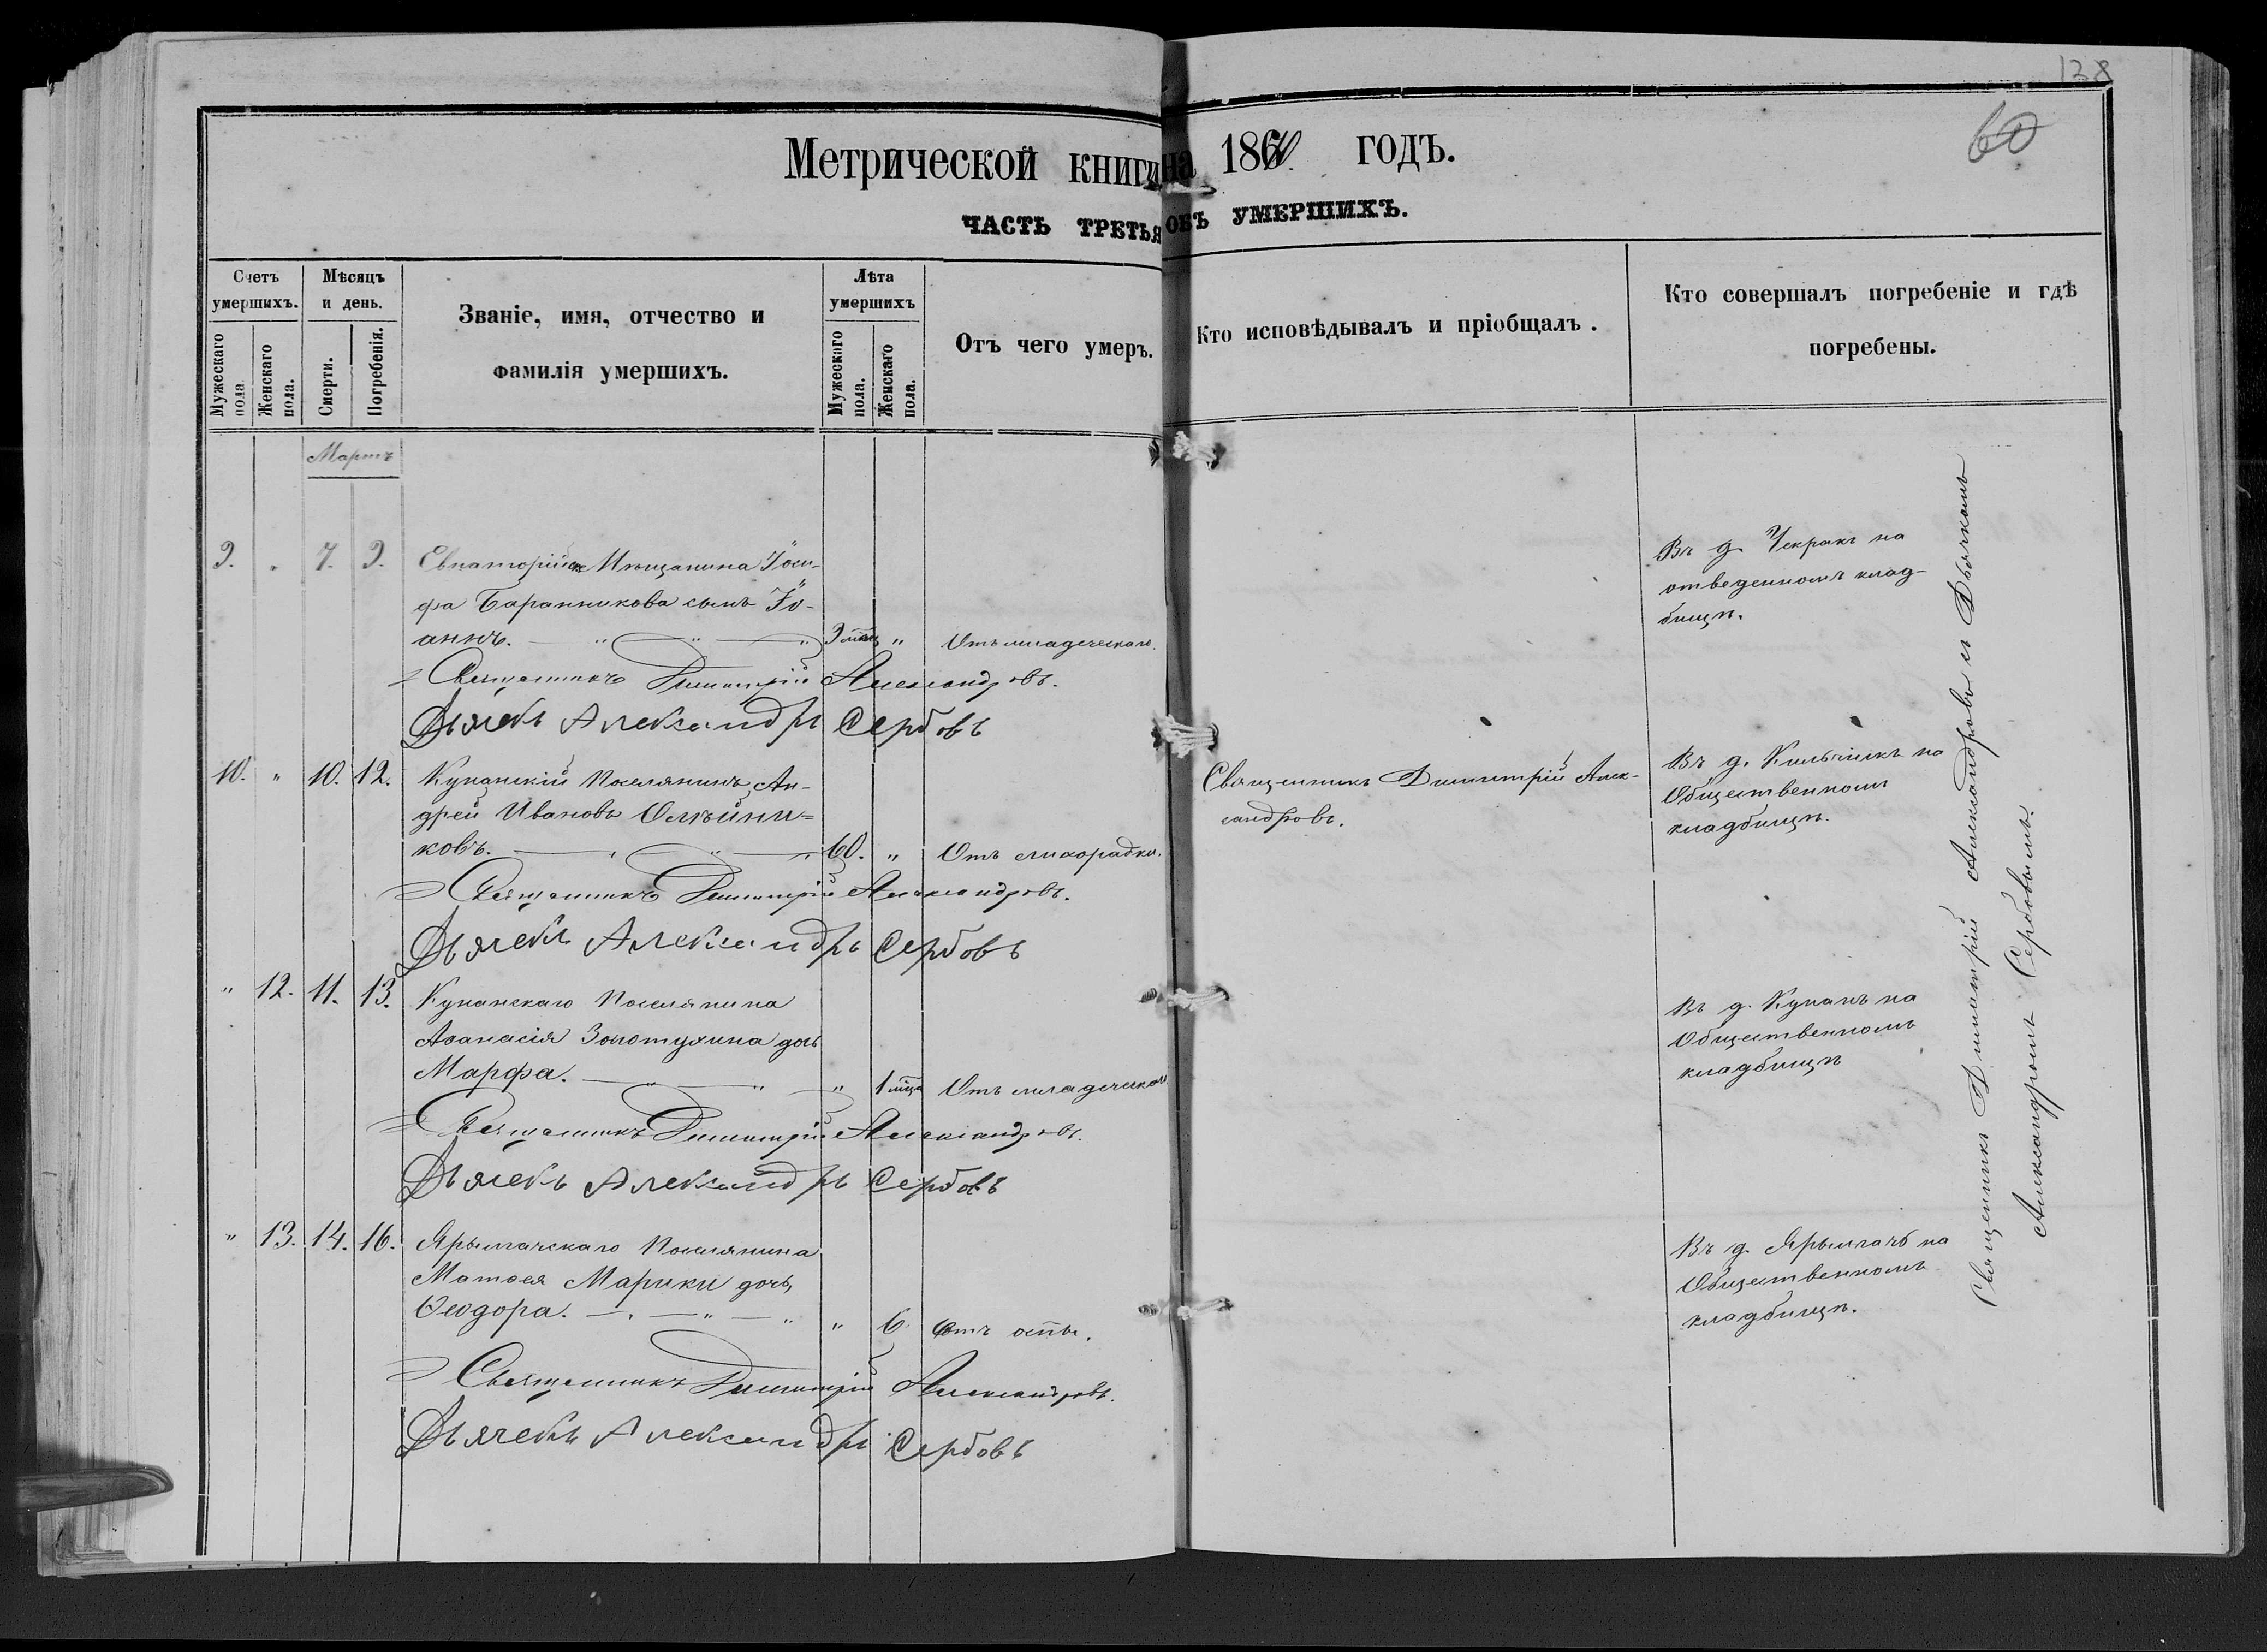 138
60
Метрической книги на 1860 годъ.
ЧАСТЬ ТРЕТЬЯ ОБЪ УМЕРШИХЪ.
Счетъ умершихъ.
Мужескаго пола
Женскаго пола.
Мѣсяцъ и день.
Смерти.
Погребенія.
Званіе, имя, отчество и
фамилія умершихъ.
Лѣта умершихъ
Мужескаго пола.
Женскаго пола.
Отъ чего умеръ.
Кто исповѣдывалъ и пріобщалъ.
Кто совершалъ погребеніе и гдѣ
погребены.
Мартъ
9. " 7. 9. Мѣщанина Іоси-
фа Баранникова сынъ Іо-
аннъ. "
Отъ младеческаго.
Въ д. Чекракъ на
отведенномъ клад-
бищѣ.
Священникъ Димитрій Александровъ.
Дьячекъ Александръ Сербовъ
10. " 10. 12. Кунанскій Поселянинъ Ан-
дрей Ивановъ Олѣйни-
ковъ. 60. " Отъ лихорадки.
Священникъ Димитрій Алек-
сандровъ.
Въ д. на
Общественномъ
кладбищѣ.
Священникъ Димитрій Александровъ.
Дьячекъ Александръ Сербовъ
" 12. 11. 13. Кунанскаго Поселянина
Аѳанасія Золотухина дочь
Марфа. " 1 мѣца Отъ младеческаго
Въ д. Кунанъ на
Общественномъ
кладбищѣ
Священникъ Димитрій Александровъ.
Дьячекъ Александръ Сербовъ
" 13. 14. 16. Ярылгачскаго Поселянина
Матѳея Марики дочь,
Ѳеодора. " 6 Отъ оспы.
Въ д. Ярылгачъ на
Общественномъ
кладбищѣ.
Священникъ Димитрій Александровъ.
Дьячекъ Александръ Сербовъ
Священникъ Димитрій Александровъ съ Дьячкомъ
Александромъ Сербовымъ.